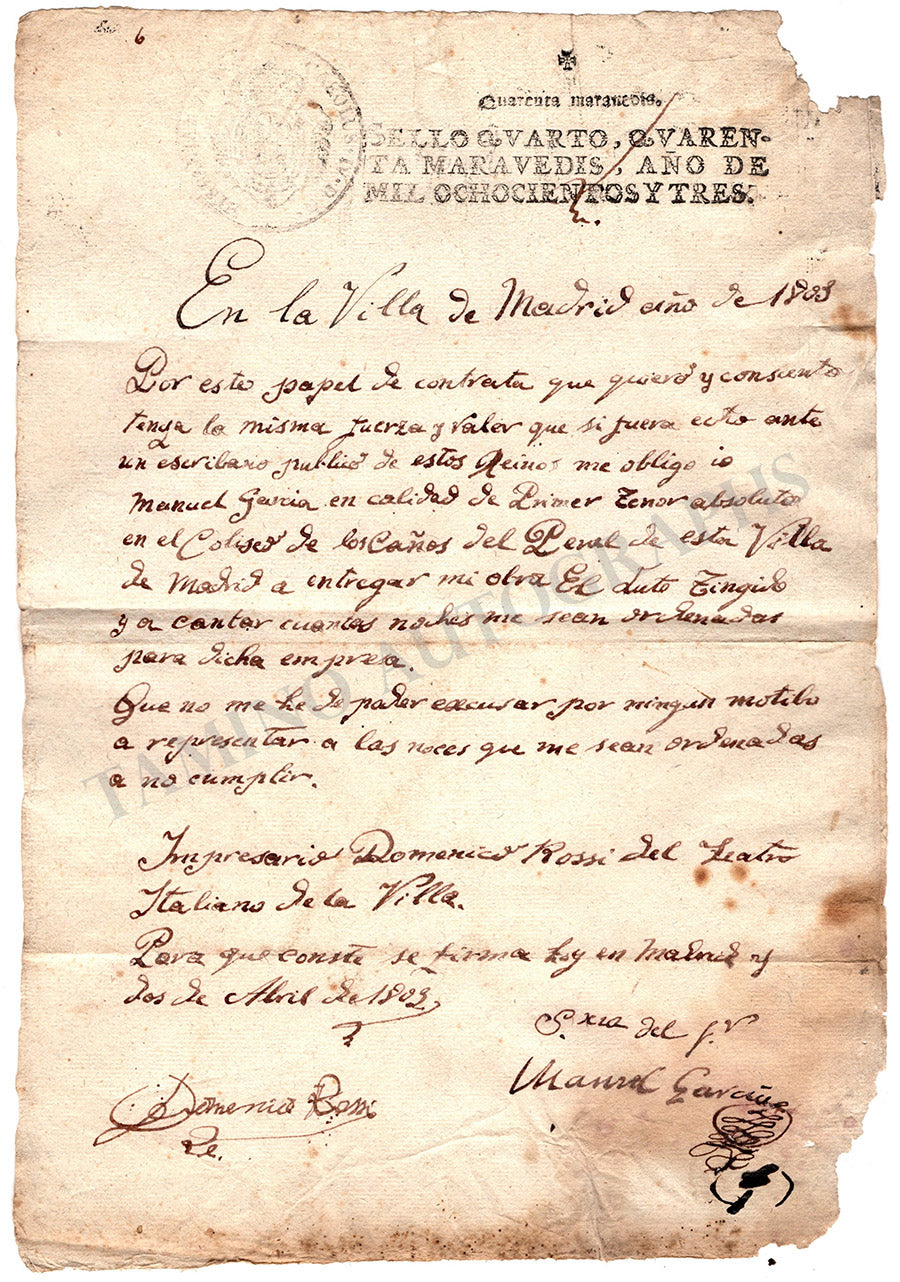 6
Quarenta maravedis.
SELLO QVARTO, QVAREN-
TA MARAVEDIS, AÑO DE
MIL OCHOCIENTOS Y TRES.
En la Villa de Madrid año de 1803
Por este papel de contrata que quiero y consiento
tenga la misma fuerza y valer que si fuera ecto ante
un escribano publico de estos Reinos me obligo io
Manuel Garcia en calidad de Primer Tenor absoluto
en el Coliseo de los Caños del Peral de esta Villa
de Madrid a entregar mi obra El Luto Fingido
y a cantar cuantas noches me sean ordenadas
para dicha empresa.
Que no me he de poder excusar por ningun motibo
a representar a las noces que me sean ordenadas
a no cumplir.
Impresario Domenico Rossi del Teatro
Italiano de la Villa.
Para que conste se firma hoy en Madrid y
dos de Abril de 1803
del
Domenico Rossi
Manuel Garcia
TAMINO AUTOGRAPHS